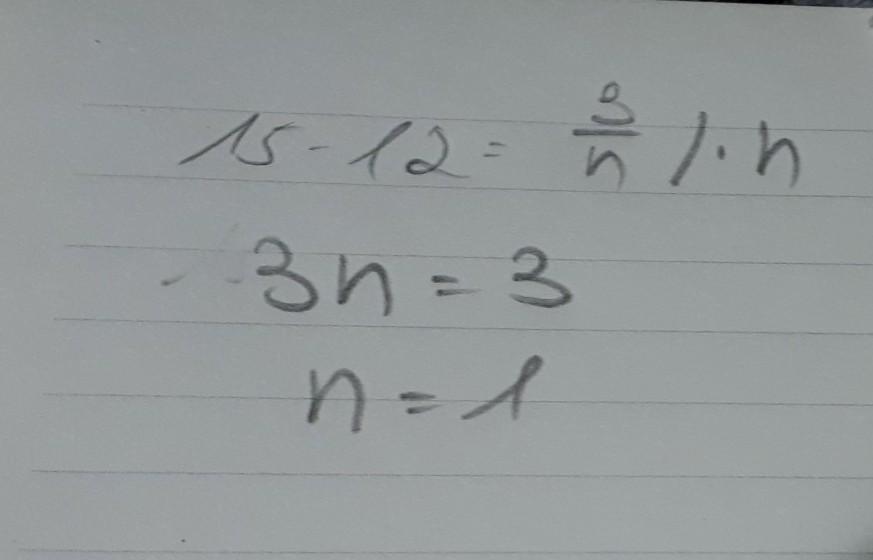 15 - 12 = 3/n /· n
3n = 3
n = 1